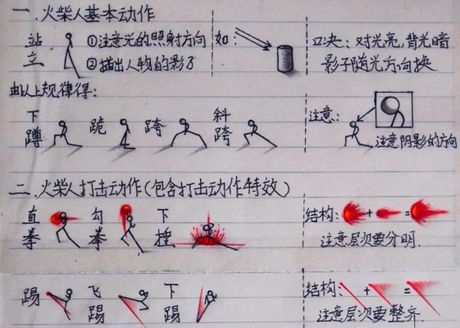 一.火柴人基本动作
站立 ①注意光的照射方向 如: 口决:对光亮,背光暗
②描出人物的影子 影子随光方向换
由以上规律得:
下蹲 跪 跨 斜跨 注意:
注意阴影的方向
二.火柴人打击动作(包含打击动作特效)
直拳 勾拳 下捶 结构: + =
注意层次要分明.
踢 飞踢 下踢 结构: + =
注意层次要整齐.